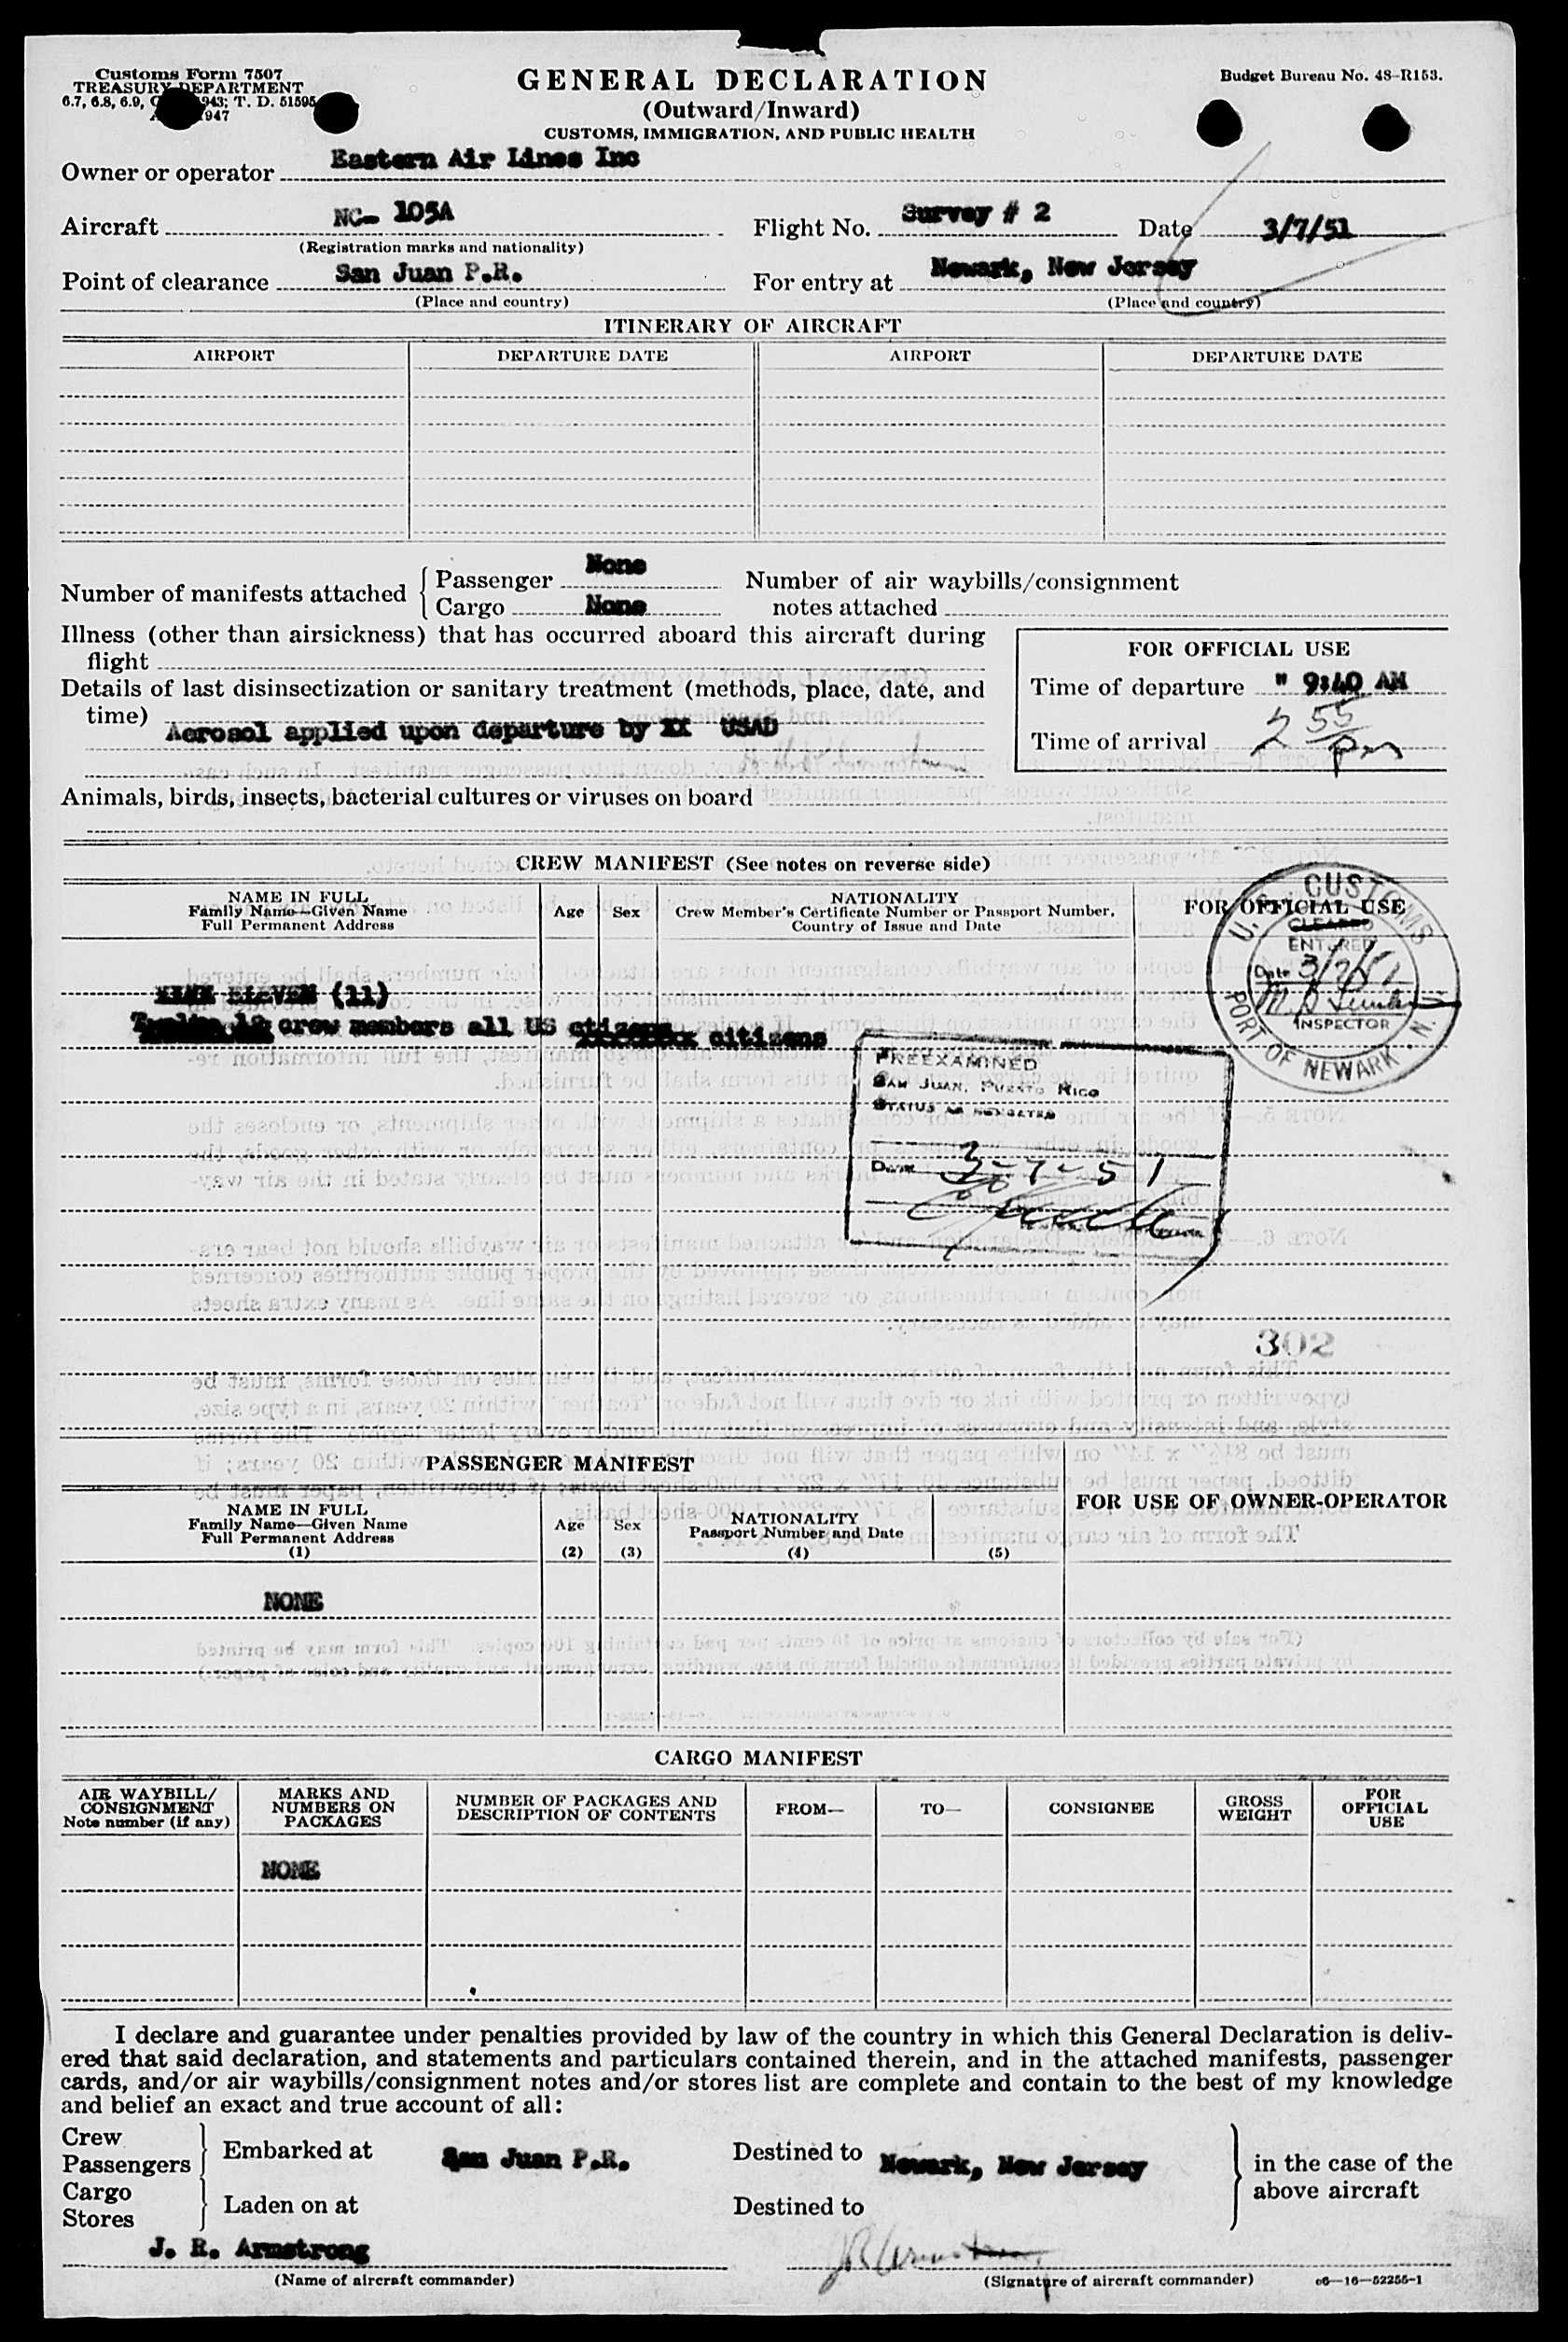 Customs Form 7507
TREASURY DEPARTMENT
6.7, 6.8, 6.9, 1943; T. D. 51595
1947
GENERAL DECLARATION
(Outward/Inward)
CUSTOMS, IMMIGRATION, AND PUBLIC HEALTH
Budget Bureau No. 48-R153.
Owner or operator Eastern Air Lines Inc
Aircraft NC- 105A Flight No. Survey # 2 Date 3/7/51
(Registration marks and nationality)
Point of clearance San Juan P.R. For entry at Newark, New Jersey
(Place and country) (Place and country)
ITINERARY OF AIRCRAFT
AIRPORT DEPARTURE DATE AIRPORT DEPARTURE DATE
Number of manifests attached { Passenger None
Cargo None
Number of air waybills/consignment
notes attached
Illness (other than airsickness) that has occurred aboard this aircraft during
flight
Details of last disinsectization or sanitary treatment (methods, place, date, and
time) Aerosol applied upon departure by XX USAD
FOR OFFICIAL USE
Time of departure " 9:40 AM
Time of arrival 2 55 pm
Animals, birds, insects, bacterial cultures or viruses on board
CREW MANIFEST (See notes on reverse side)
NAME IN FULL
Family Name—Given Name
Full Permanent Address
Age
Sex
NATIONALITY
Crew Member's Certificate Number or Passport Number,
Country of Issue and Date
FOR OFFICIAL USE
U. S. CUSTOMS
CLEARED
ENTERED
Date 3/7/51
INSPECTOR
PORT OF NEWARK N.
ELEVEN (11)
crew members all US citizens
PREEXAMINED
SAN JUAN, PUERTO RICO
STATUS AS INDICATED
DATE 3-7-51
302
PASSENGER MANIFEST
NAME IN FULL
Family Name—Given Name
Full Permanent Address
(1)
Age
(2)
Sex
(3)
NATIONALITY
Passport Number and Date
(4) (5)
FOR USE OF OWNER-OPERATOR
NONE
CARGO MANIFEST
AIR WAYBILL/
CONSIGNMENT
Note number (if any)
MARKS AND
NUMBERS ON
PACKAGES
NUMBER OF PACKAGES AND
DESCRIPTION OF CONTENTS
FROM—
TO—
CONSIGNEE
GROSS
WEIGHT
FOR
OFFICIAL
USE
NONE
I declare and guarantee under penalties provided by law of the country in which this General Declaration is deliv-
ered that said declaration, and statements and particulars contained therein, and in the attached manifests, passenger
cards, and/or air waybills/consignment notes and/or stores list are complete and contain to the best of my knowledge
and belief an exact and true account of all:
Crew
Passengers } Embarked at San Juan P.R. Destined to Newark, New Jersey
Cargo
Stores } Laden on at Destined to
} in the case of the
above aircraft
J. R. Armstrong JR Armstrong
(Name of aircraft commander) (Signature of aircraft commander) c6—16—52255-1